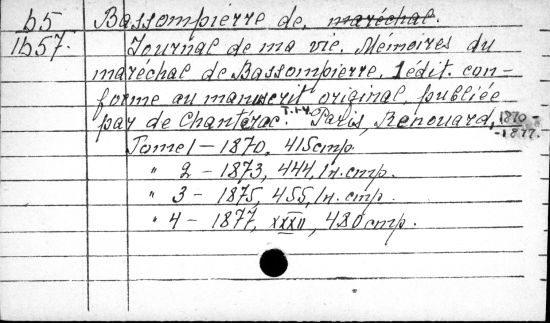 b5 Bassompierre de, maréchal.
1b57. Journal de ma vie. Mémoires du
maréchal de Bassompierre. 1 édit. con-
forme au manuscrit original, publiée
par de Chantérac. T. 1-4. Paris, Renouard, 1870
-1877.
Tome 1 – 1870, 415 cmp.
" 2 – 1873, 444, 1 н. cmp.
" 3 – 1875, 455, 1 н. cmp.
" 4 – 1877, XXXII, 480 cmp.